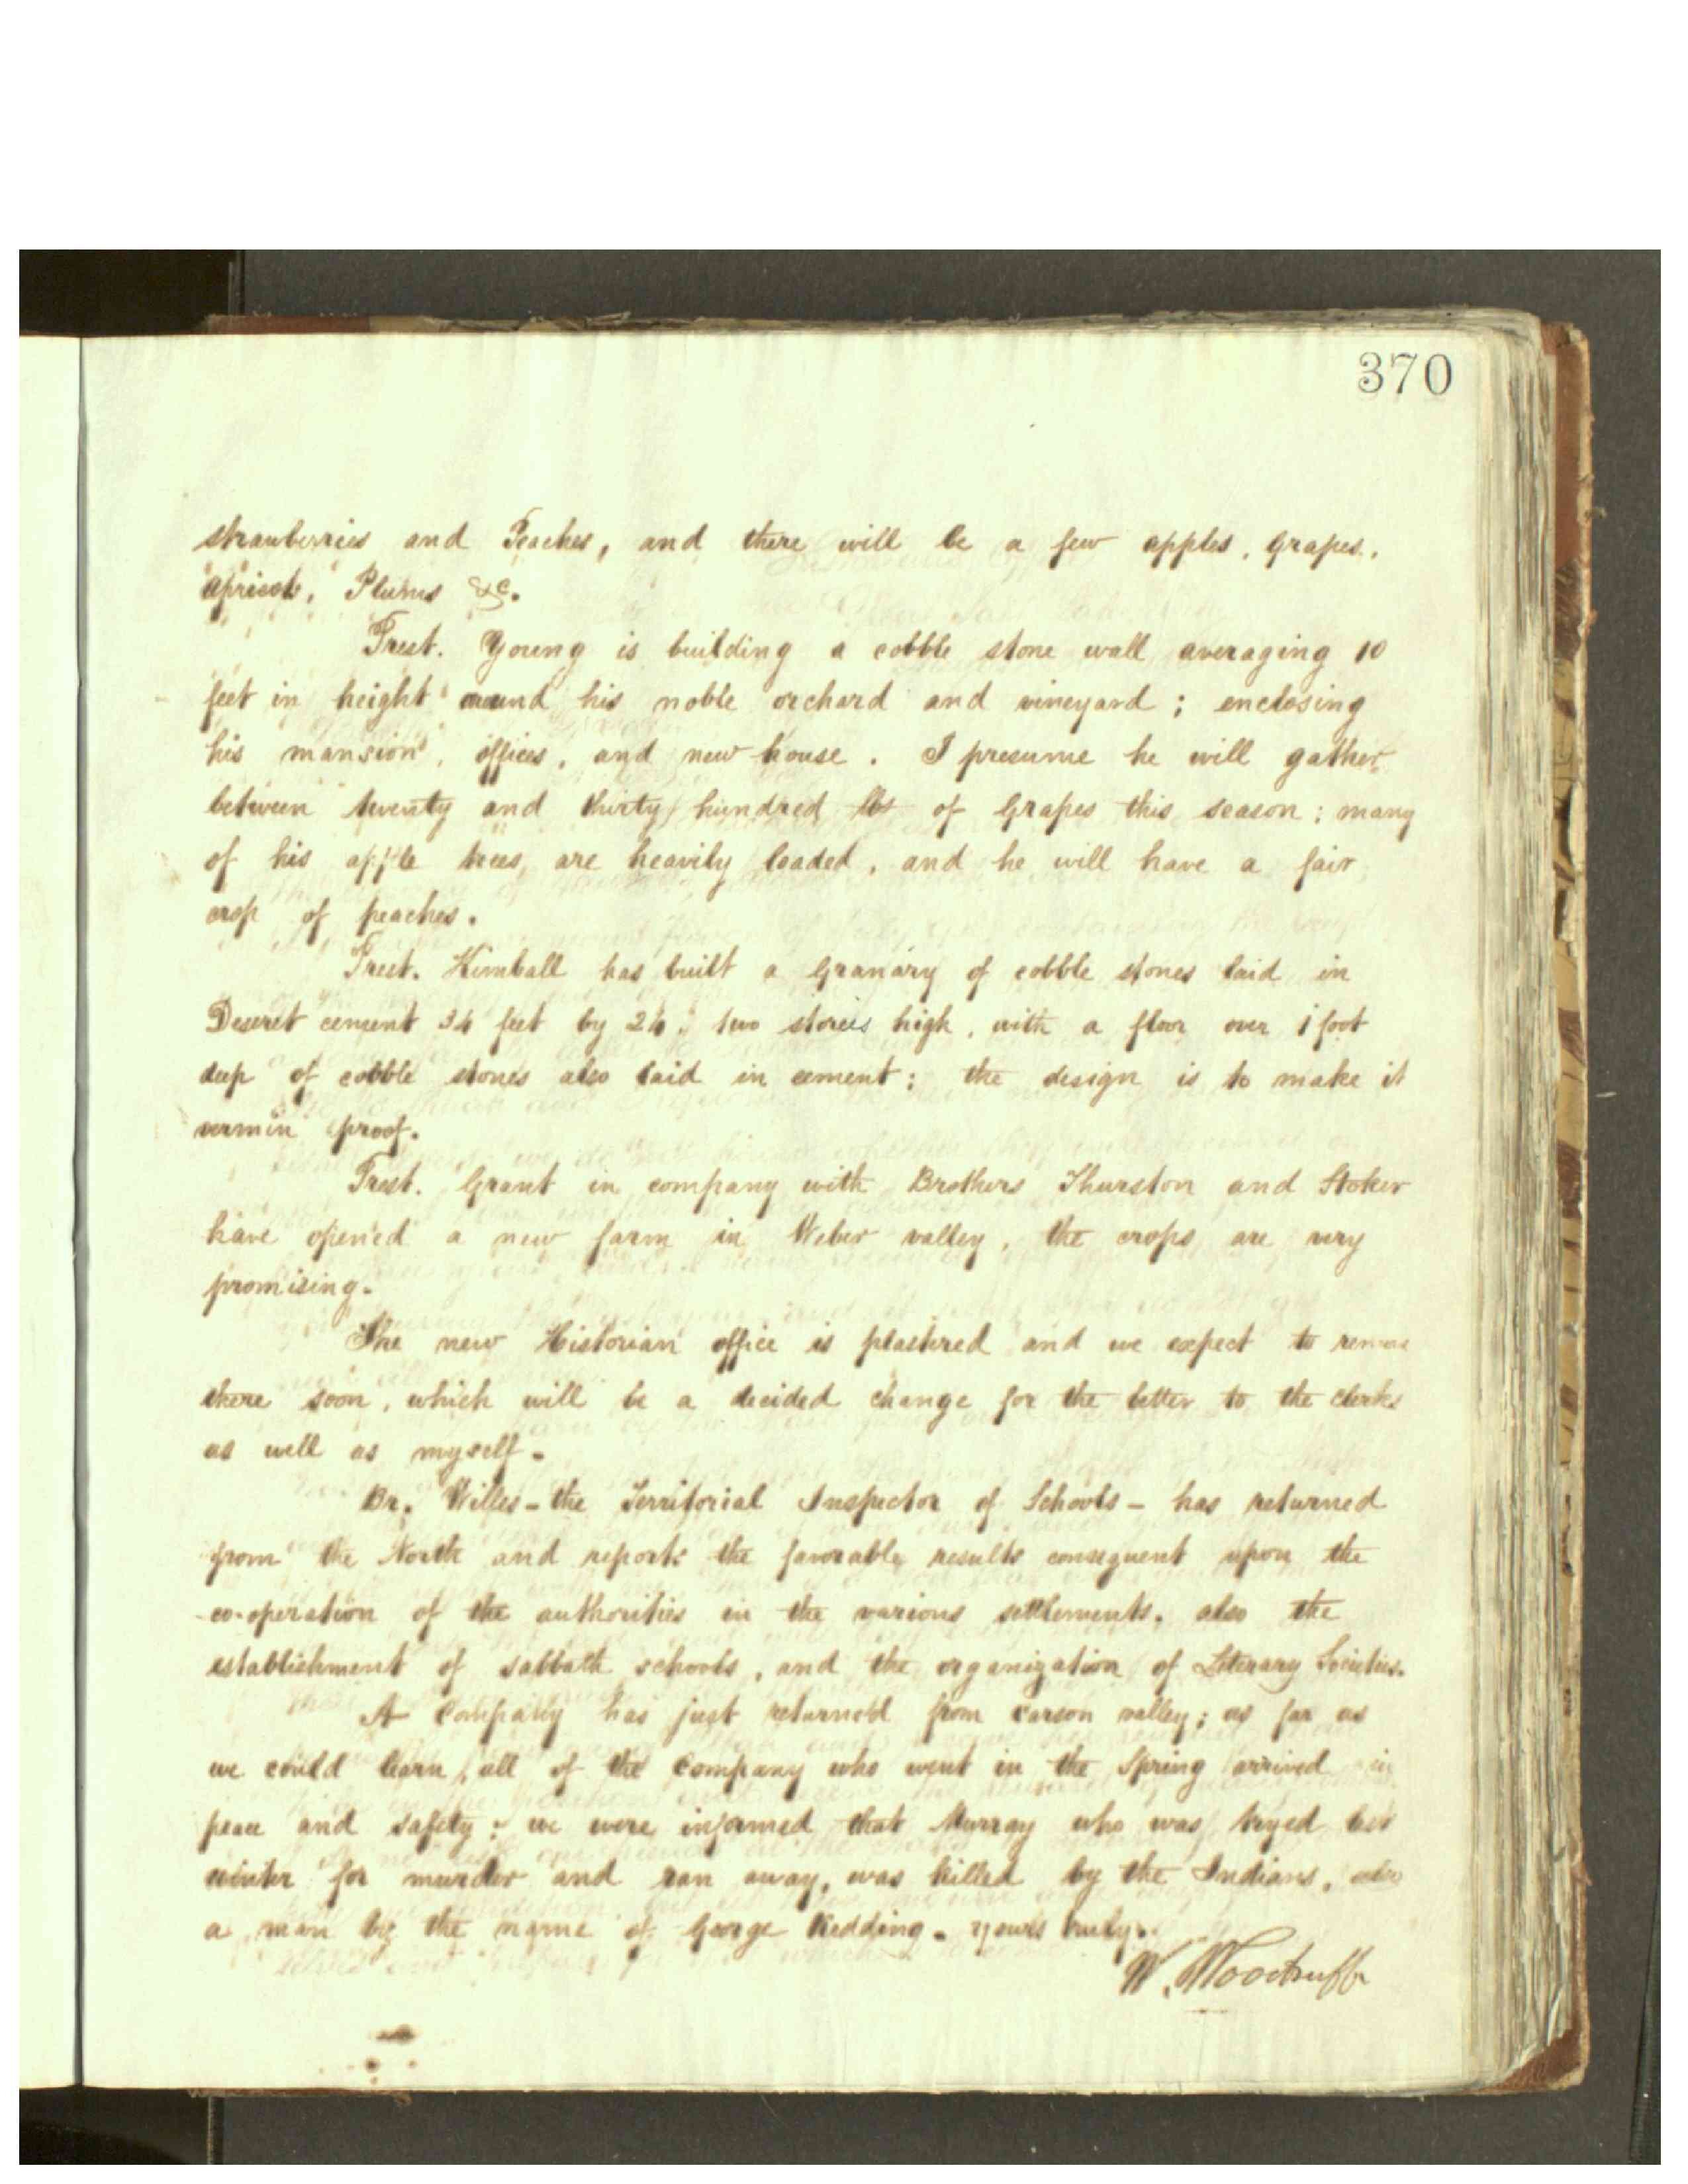 370
strawberries and Peaches, and there will be a few apples, grapes,
apricots, Plums &c.
Prest. Young is building a cobble stone wall averaging 10
feet in height around his noble orchard and vineyard; enclosing
his mansion, offices, and new house. I presume he will gather
between twenty and thirty hundred lbs of Grapes this season; many
of his apple trees, are heavily loaded, and he will have a fair
crop of peaches.
Prest. Kimball has built a Granary of cobble stones laid in
Deseret cement feet by two stories high, with a floor over 1 foot
deep of cobble stones also laid in cement; the design is to make it
vermin proof.
Prest. Grant in company with Brothers Thurston and Stoker
have opened a new farm in Weber valley, the crops are very
promising.
The new Historian office is plastered and we expect to remove
there soon, which will be a decided change for the better to the clerks
as well as myself.
Br. Willes - the Territorial Inspector of Schools - has returned
from the North and reports the favorable results consequent upon the
co-operation of the authorities in the various settlements, also the
establishment of sabbath schools, and the organization of Literary Societies.
A Company has just returned from carson valley; as far as
we could learn, all of the Company who went in the Spring arrived in
peace and safety; we were informed that Murray who was tryed last
winter for murder and ran away, was killed by the Indians, also
a man by the name of George Redding. yours truly.
W. Woodruff